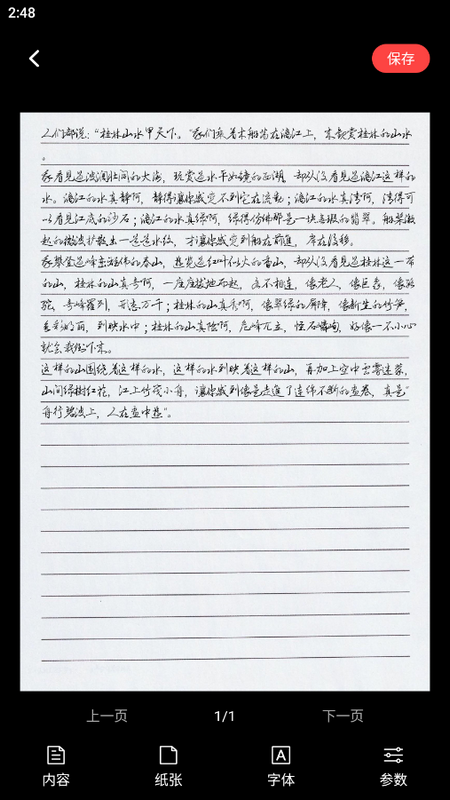 2:48
保存
人们都说："桂林山水甲天下。"我们乘着木船荡在漓江上，来观赏桂林的山水
。
我看见过波澜壮阔的大海，玩赏过水平如镜的西湖，却从没看见过漓江这样的
水。漓江的水真静啊，静得让你感觉不到它在流动；漓江的水真清啊，清得可
以看见江底的沙石；漓江的水真绿啊，绿得仿佛那是一块无瑕的翡翠。船桨激
起的微波扩散出一道道水纹，才让你感觉到船在前进，岸在后移。
我攀登过峰峦雄伟的泰山，游览过红叶似火的香山，却从没看见过桂林这一带
的山，桂林的山真奇啊，一座座拔地而起，各不相连，像老人，像巨象，像骆
驼，奇峰罗列，形态万千；桂林的山真秀啊，像翠绿的屏障，像新生的竹笋，
色彩明丽，倒映水中；桂林的山真险啊，危峰兀立，怪石嶙峋，好像一不小心
就会栽倒下来。
这样的山围绕着这样的水，这样的水倒映着这样的山，再加上空中云雾迷蒙，
山间绿树红花，江上竹筏小舟，让你感到像是走进了连绵不断的画卷，真是"
舟行碧波上，人在画中游"。
上一页
1/1
下一页
内容
纸张
字体
参数